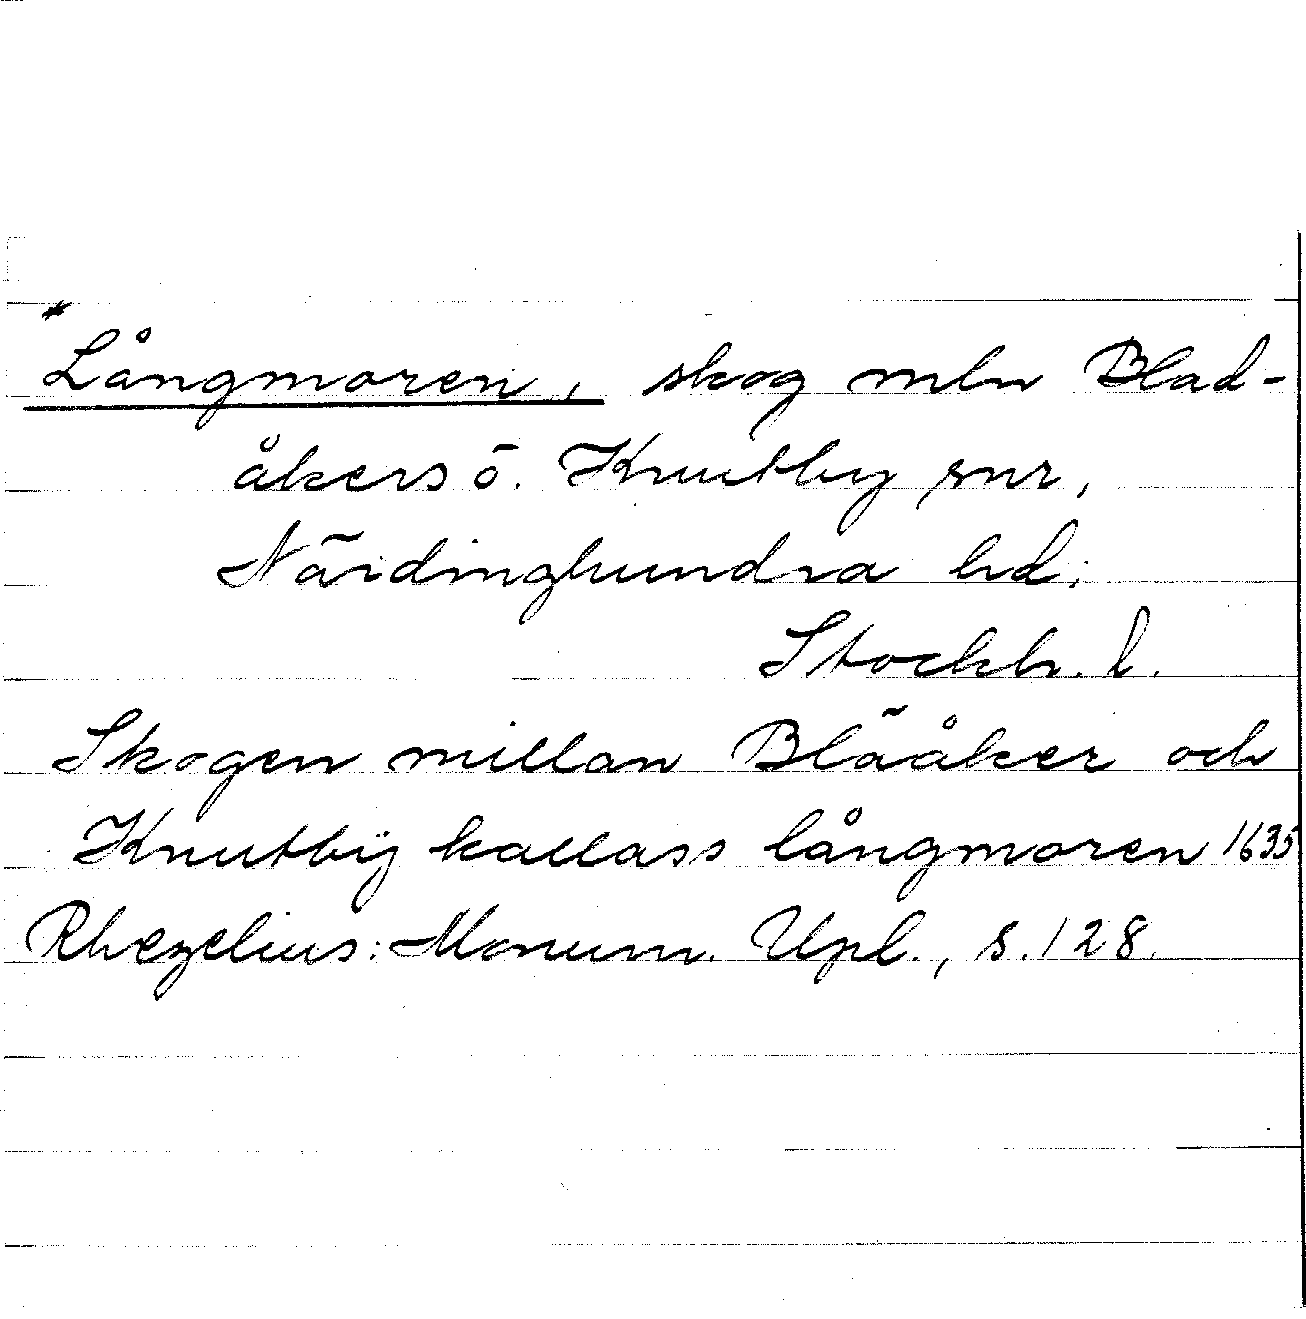 *Långmoren, skog mln Blad-
åkers o. Knutby snr,
Närdinghundra hd.
Stockh. l.
Skogen millan Blãåker och
Knutbÿ kallass långmoren 1635
Rhezelius: Monum. Upl., s. 128.